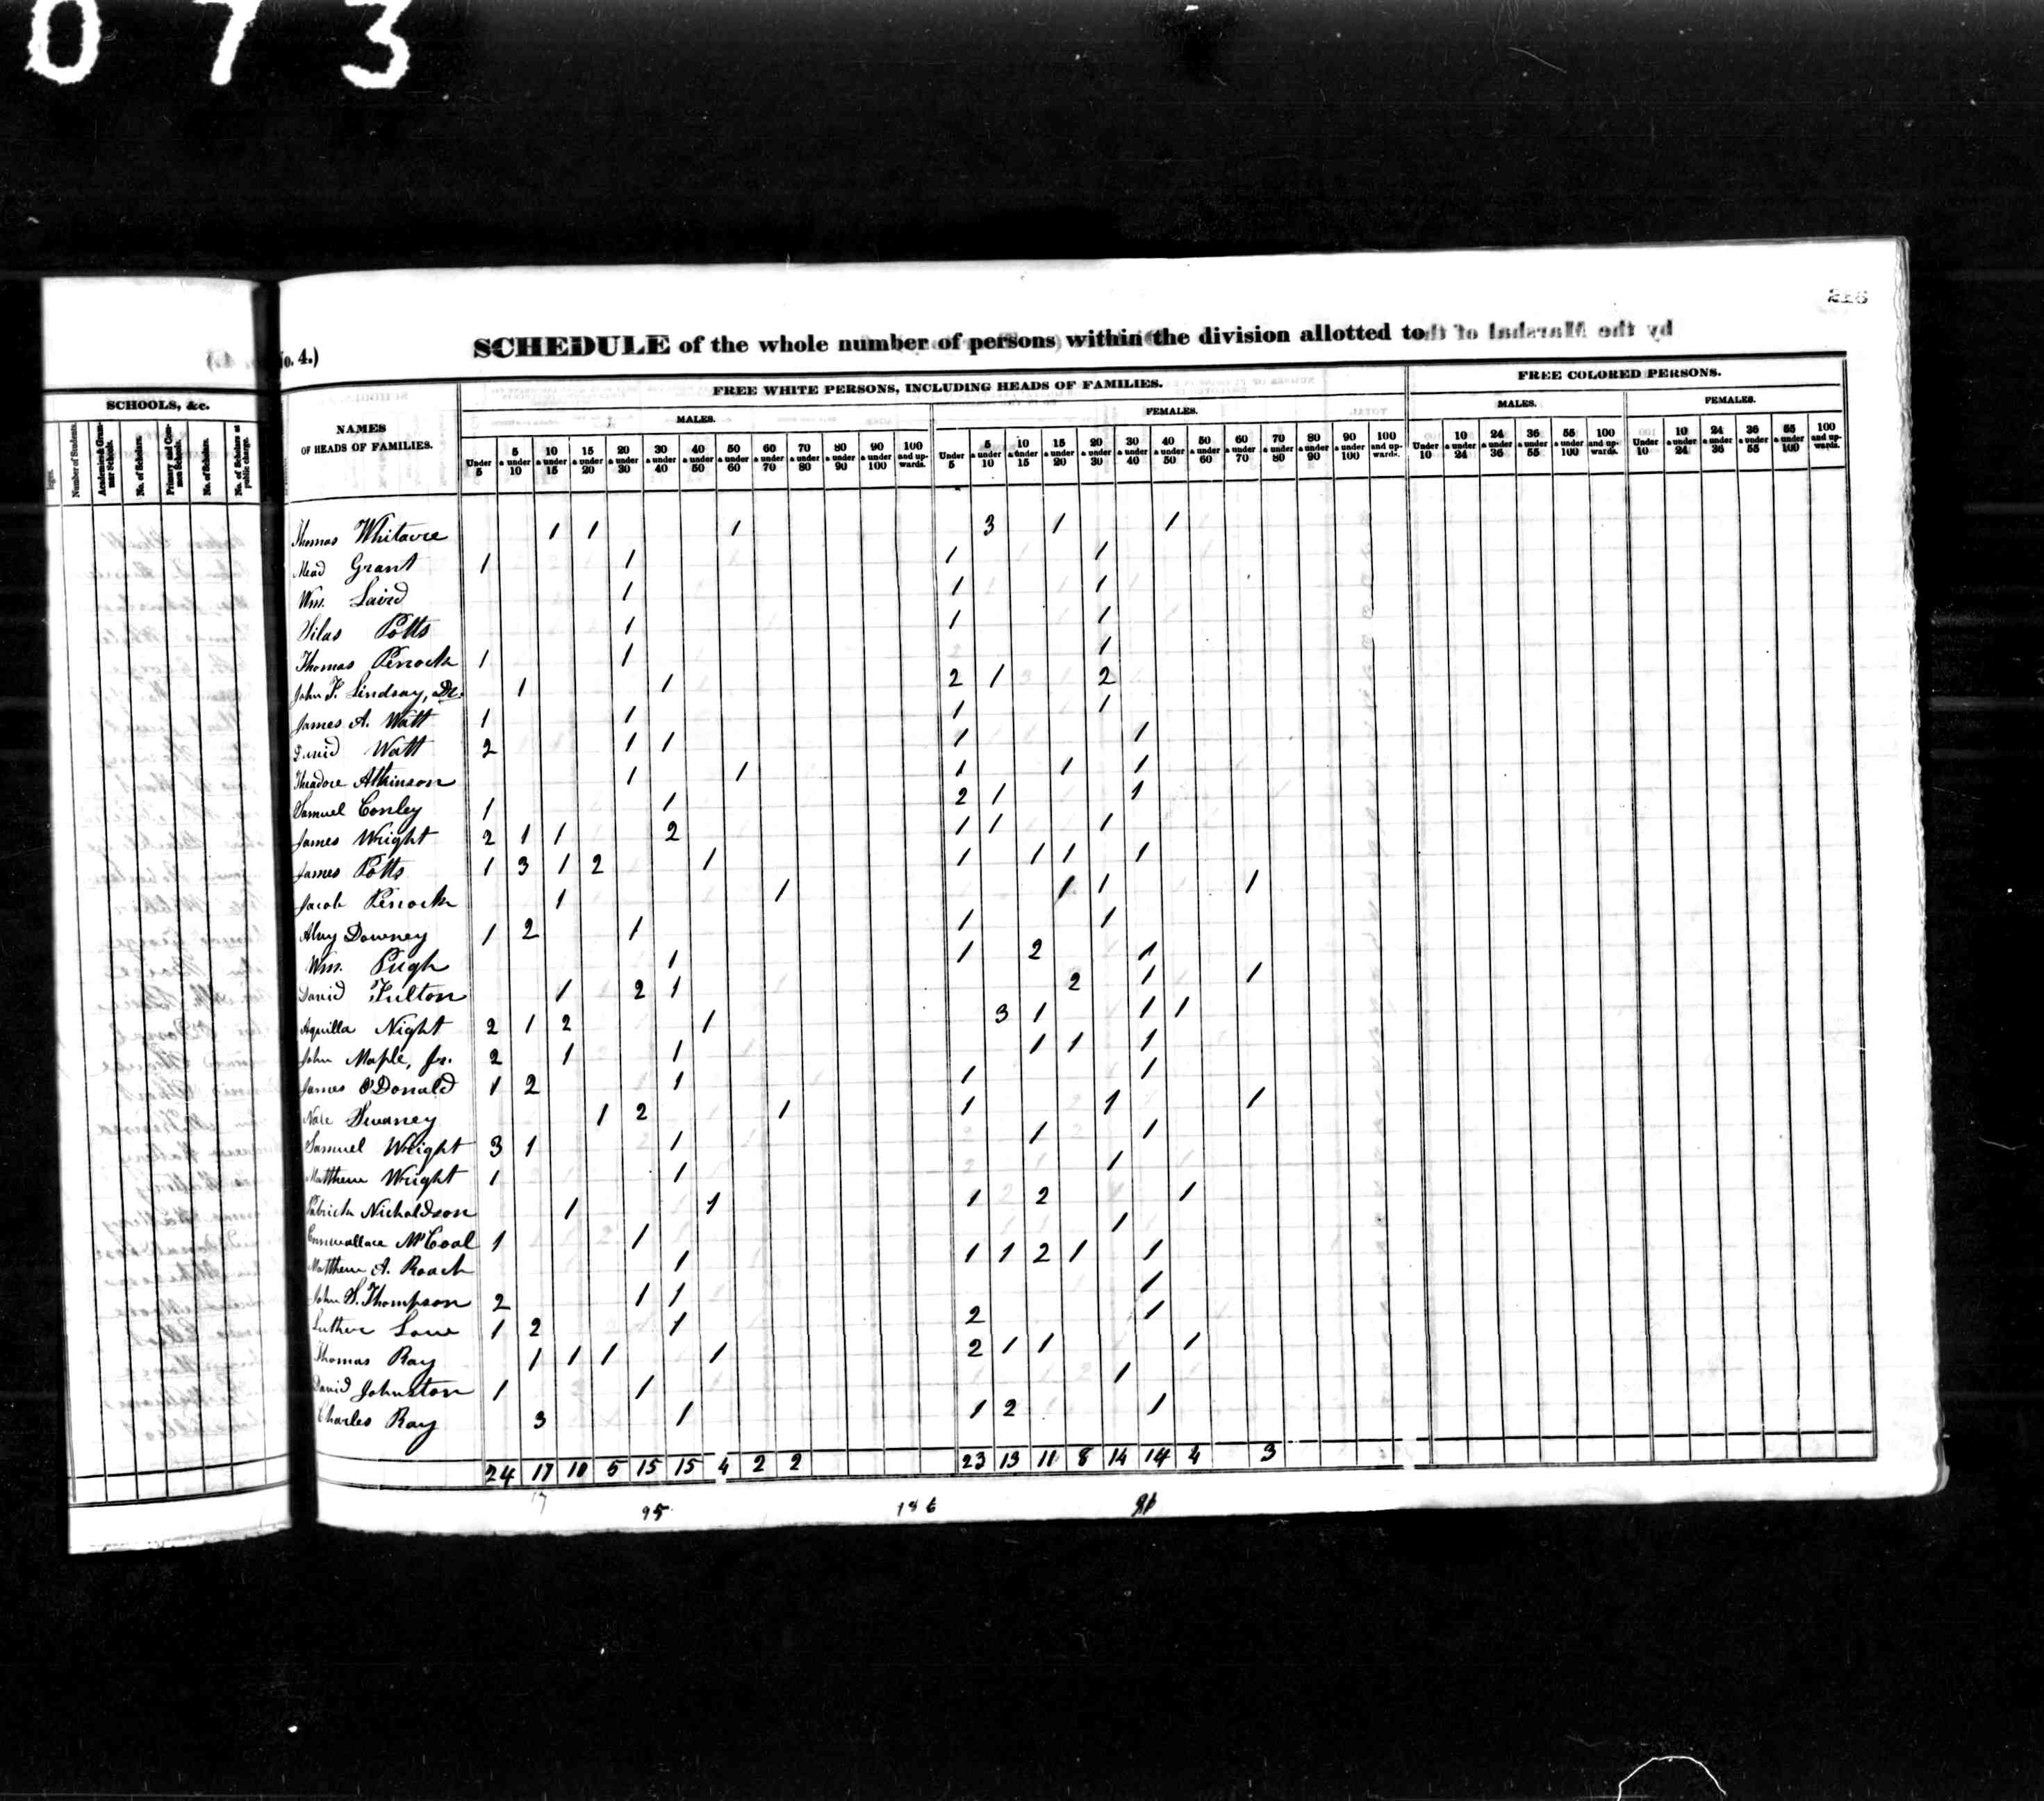 073
No. 4.)
SCHEDULE of the whole number of persons within the division allotted to
by the Marshal of the
SCHOOLS, &c.
Number of Students.
Academies & Grammar Schools.
No. of Scholars.
Primary and Common Schools.
No. of Scholars.
No. of Scholars at public charge.
NAMES
OF HEADS OF FAMILIES.
FREE WHITE PERSONS, INCLUDING HEADS OF FAMILIES.
FREE COLORED PERSONS.
MALES. FEMALES. MALES. FEMALES.
Under 5 | 5 & under 10 | 10 & under 15 | 15 & under 20 | 20 & under 30 | 30 & under 40 | 40 & under 50 | 50 & under 60 | 60 & under 70 | 70 & under 80 | 80 & under 90 | 90 & under 100 | 100 and upwards.
Under 5 | 5 & under 10 | 10 & under 15 | 15 & under 20 | 20 & under 30 | 30 & under 40 | 40 & under 50 | 50 & under 60 | 60 & under 70 | 70 & under 80 | 80 & under 90 | 90 & under 100 | 100 and upwards.
Under 10 | 10 & under 24 | 24 & under 36 | 36 & under 55 | 55 & under 100 | 100 and upwards.
Under 10 | 10 & under 24 | 24 & under 36 | 36 & under 55 | 55 & under 100 | 100 and upwards.
Thomas Whitacre 1 1 1 3 1 1
Mead Grant 1 1 1 1
Wm. Laird 1 1 1
Silas Potts 1 1 1
Thomas Penock 1 1 1
John F. Lindsay, Dr. 1 1 2 1 2
James A. Watt 1 1 1 1
David Watt 2 1 1 1 1
Theadore Atkinson 1 1 1 1 1
Samuel Conley 1 1 2 1 1
James Wright 2 1 1 2 1 1 1
James Potts 1 3 1 2 1 1 1 1 1
Jacob Penock 1 1 1 1 1
Downey 1 2 1 1 1
Wm. Pugh 1 1 2 1
David Fulton 1 2 1 2 1 1
Aquilla Night 2 1 2 1 3 1 1 1
John Maple, Jr. 2 1 1 1 1 1
James O'Donald 1 2 1 1 1
Swaney 1 2 1 1 1 1
Samuel Wright 3 1 1 1 1
Matthew Wright 1 1 1
Patrick Nicholdson 1 1 1 2 1
McCoal 1 1 1
Matthew A. Roach 1 1 1 2 1 1
John S. Thompson 2 1 1 1
Luther Low 1 2 1 2 1
Thomas Ray 1 1 1 1 2 1 1 1
David Johnston 1 1 1
Charles Ray 3 1 1 2 1
24 17 10 6 15 15 4 2 2 23 13 11 8 14 14 4 3
17 95 186